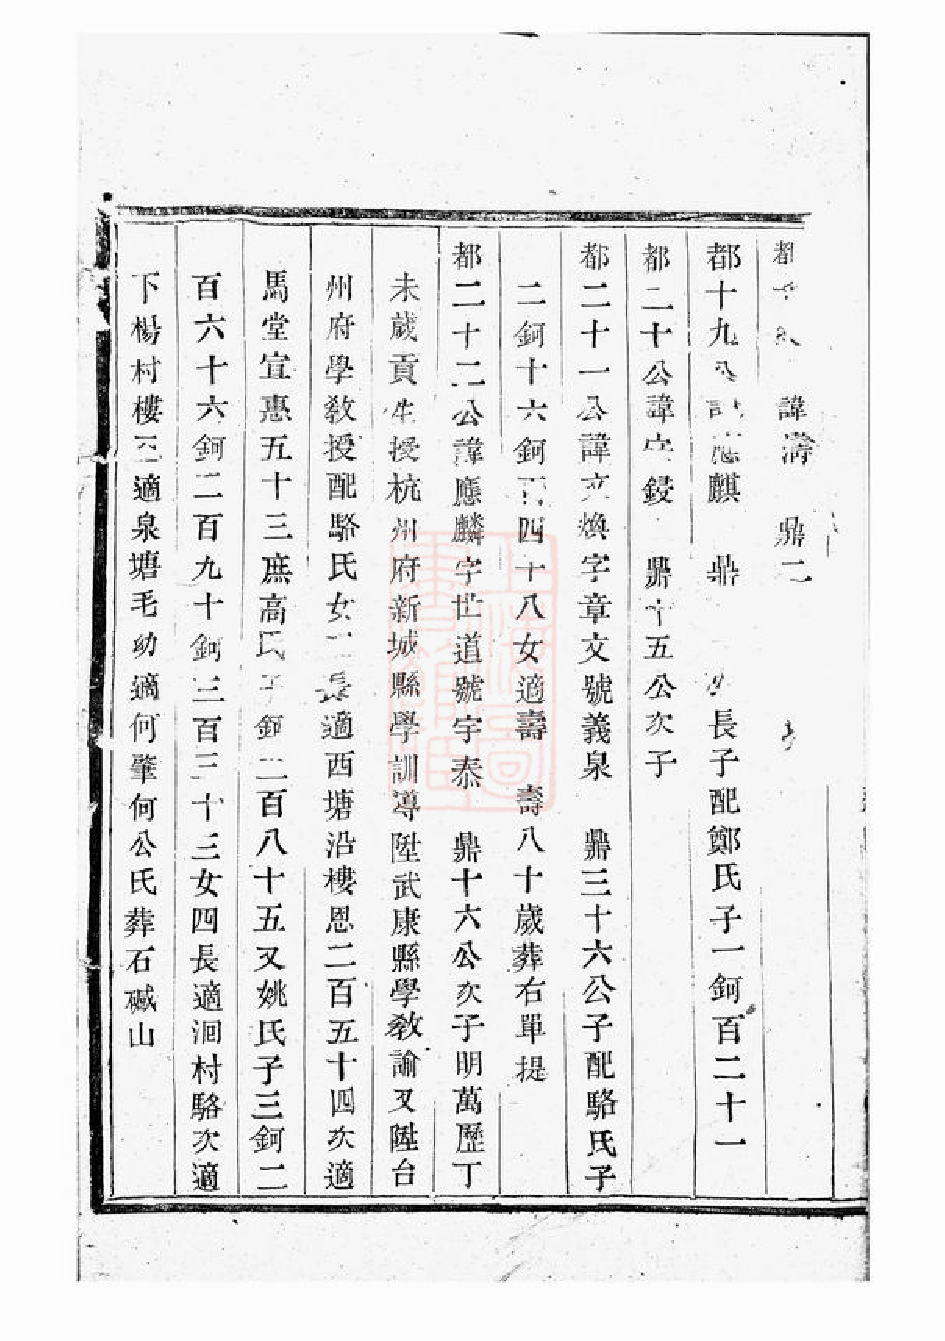 都 諱濤 鼎二
都十九公 應麒 鼎 長子配鄭氏子一鈳百二十一
都二十公諱 鋟 鼎十五公次子
都二十一公諱文煥字章文號義泉 鼎三十六公子配駱氏子
二鈳十六鈳 四十八女適壽 壽八十歲葬右單提
都二十二公諱應麟字世道號宇泰 鼎十六公次子明萬歷丁
未歲貢生授杭州府新城縣學訓導陞武康縣學敎諭又陞台
州府學敎授配駱氏女 長適西塘沿樓恩二百五十四次適
馬堂宣惠五十三庶高氏子鈳二百八十五又姚氏子三鈳二
百六十六鈳二百九十鈳三百三十三女四長適洄村駱次適
下楊村樓三適泉塘毛幼適何肇何公氏葬石碱山